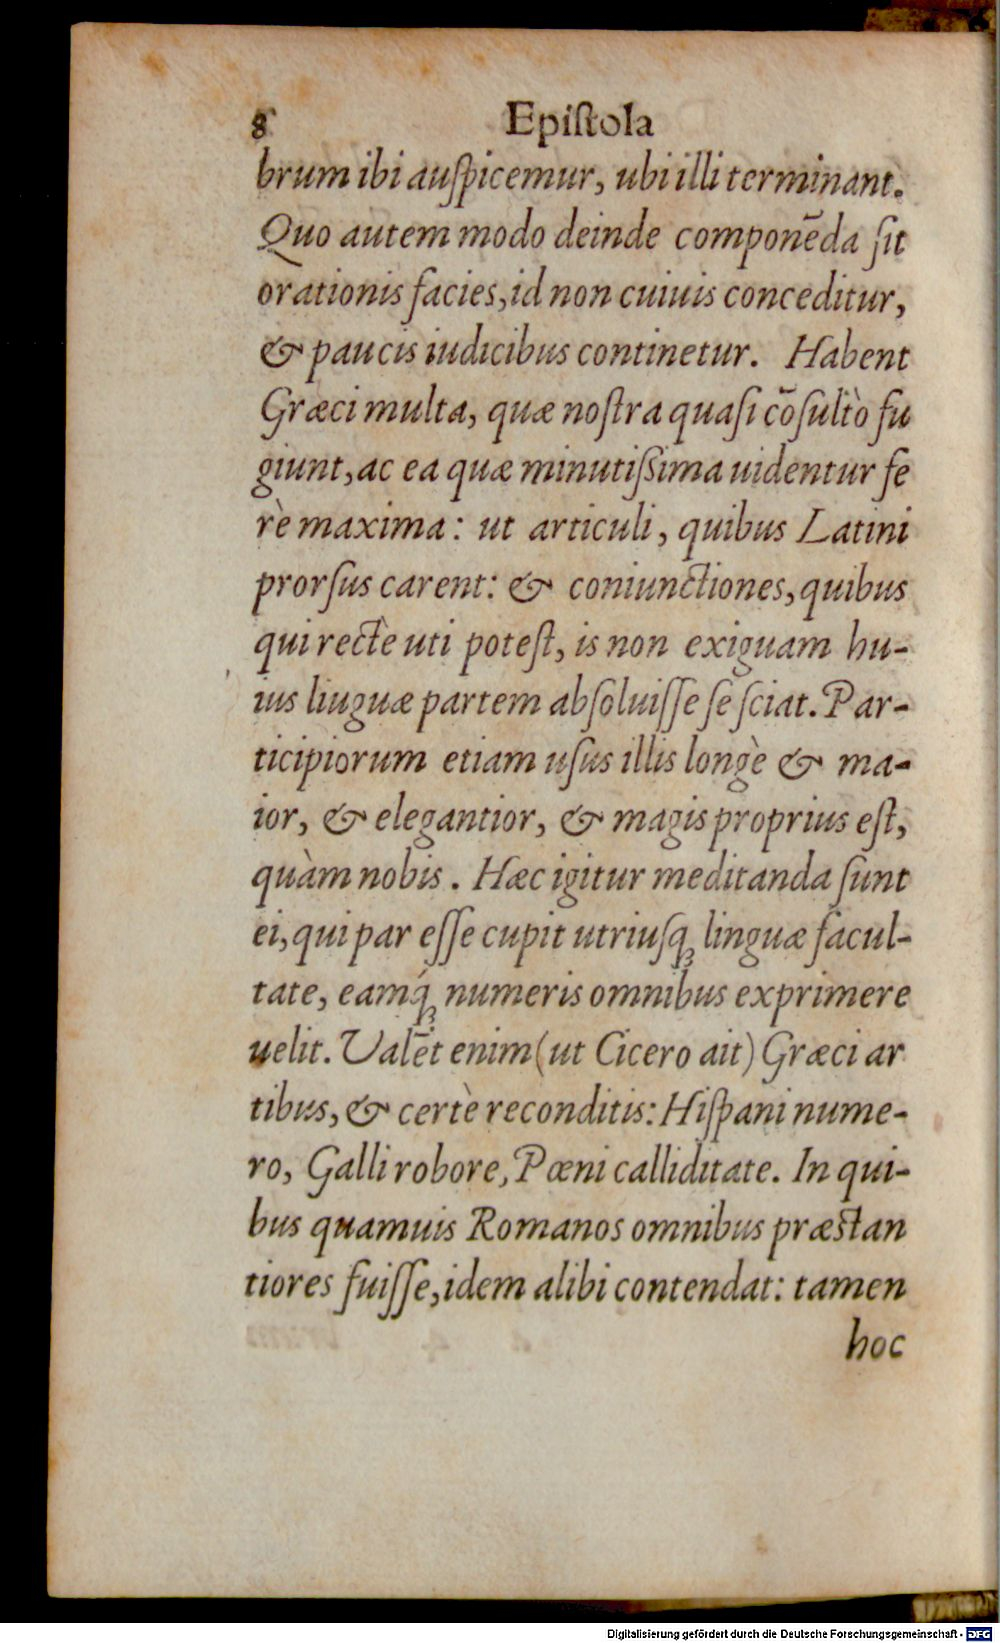 8 Epiſtola
brum ibi auſpicemur, ubi illi terminant.
Quo autem modo deinde componēda ſit
orationis facies, id non cuiuis conceditur,
& paucis iudicibus continetur. Habent
Græci multa, quæ noſtra quaſi cōſultò fu
giunt, ac ea quæ minutiſsima uidentur fe
rè maxima: ut articuli, quibus Latini
prorſus carent: & coniunctiones, quibus
qui rectè uti poteſt, is non exiguam hu-
ius liuguæ partem abſoluiſſe ſe ſciat. Par-
ticipiorum etiam uſus illis longè & ma-
ior, & elegantior, & magis proprius eſt,
quàm nobis. Hæc igitur meditanda ſunt
ei, qui par eſſe cupit utriuſq́; linguæ facul-
tate, eamq́; numeris omnibus exprimere
uelit. Valēt enim (ut Cicero ait) Græci ar
tibus, & certè reconditis: Hiſpani nume-
ro, Galli robore, Pœni calliditate. In qui-
bus quamuis Romanos omnibus præſtan
tiores fuiſſe, idem alibi contendat: tamen
hoc
Digitalisierung gefördert durch die Deutsche Forschungsgemeinschaft - DFG